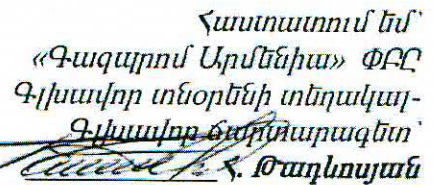 Հաստատում եմ՝
«Գազպրոմ Արմենիա» ՓԲԸ
Գլխավոր տնօրենի տեղակալ-
Գլխավոր ճարտարագետ՝
Հ. Թադևոսյան